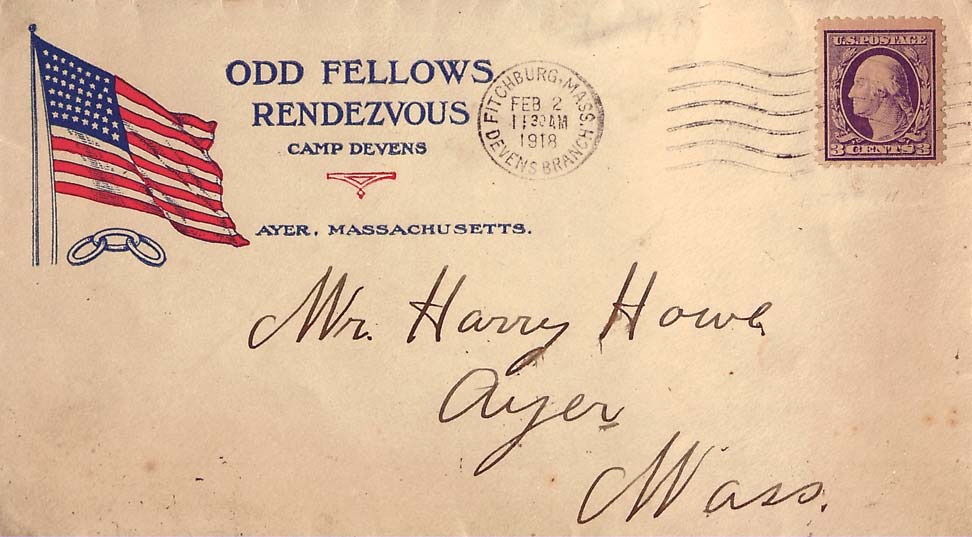 ODD FELLOWS
RENDEZVOUS
CAMP DEVENS
AYER, MASSACHUSETTS.
FITCHBURG, MASS.
FEB 2
11 30 AM
1918
DEVENS BRANCH
U.S. POSTAGE
3 CENTS 3
Mr. Harry Howe
Ayer
Mass.